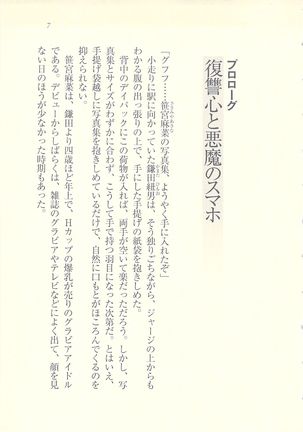 7
プロローグ
復讐心と悪魔のスマホ
「グフフ……笹宮麻菜の写真集、ようやく手に入れたぞ」
小走りに駅に向かっていた鎌田紐男は、そう独りごちながら、ジャージの上からも
わかる腹の出っ張りの上で、手にした手提げの紙袋を抱きしめた。
背中のデイパックにこの荷物が入れば、両手が空いて楽だっただろう。しかし、写
真集とサイズがわずかに合わず、こうして手で持つ羽目になった次第だ。とはいえ、
手提げ袋越しに写真集を抱きしめているだけで、自然に口もとがほころんでくるのを
抑えられない。
笹宮麻菜は、鎌田より四歳ほど年上で、Hカップの爆乳が売りのグラビアアイドル
である。デビューからしばらくは、雑誌のグラビアやテレビなどによく出て、顔を見
ない日のほうが少なかった時期もあった。